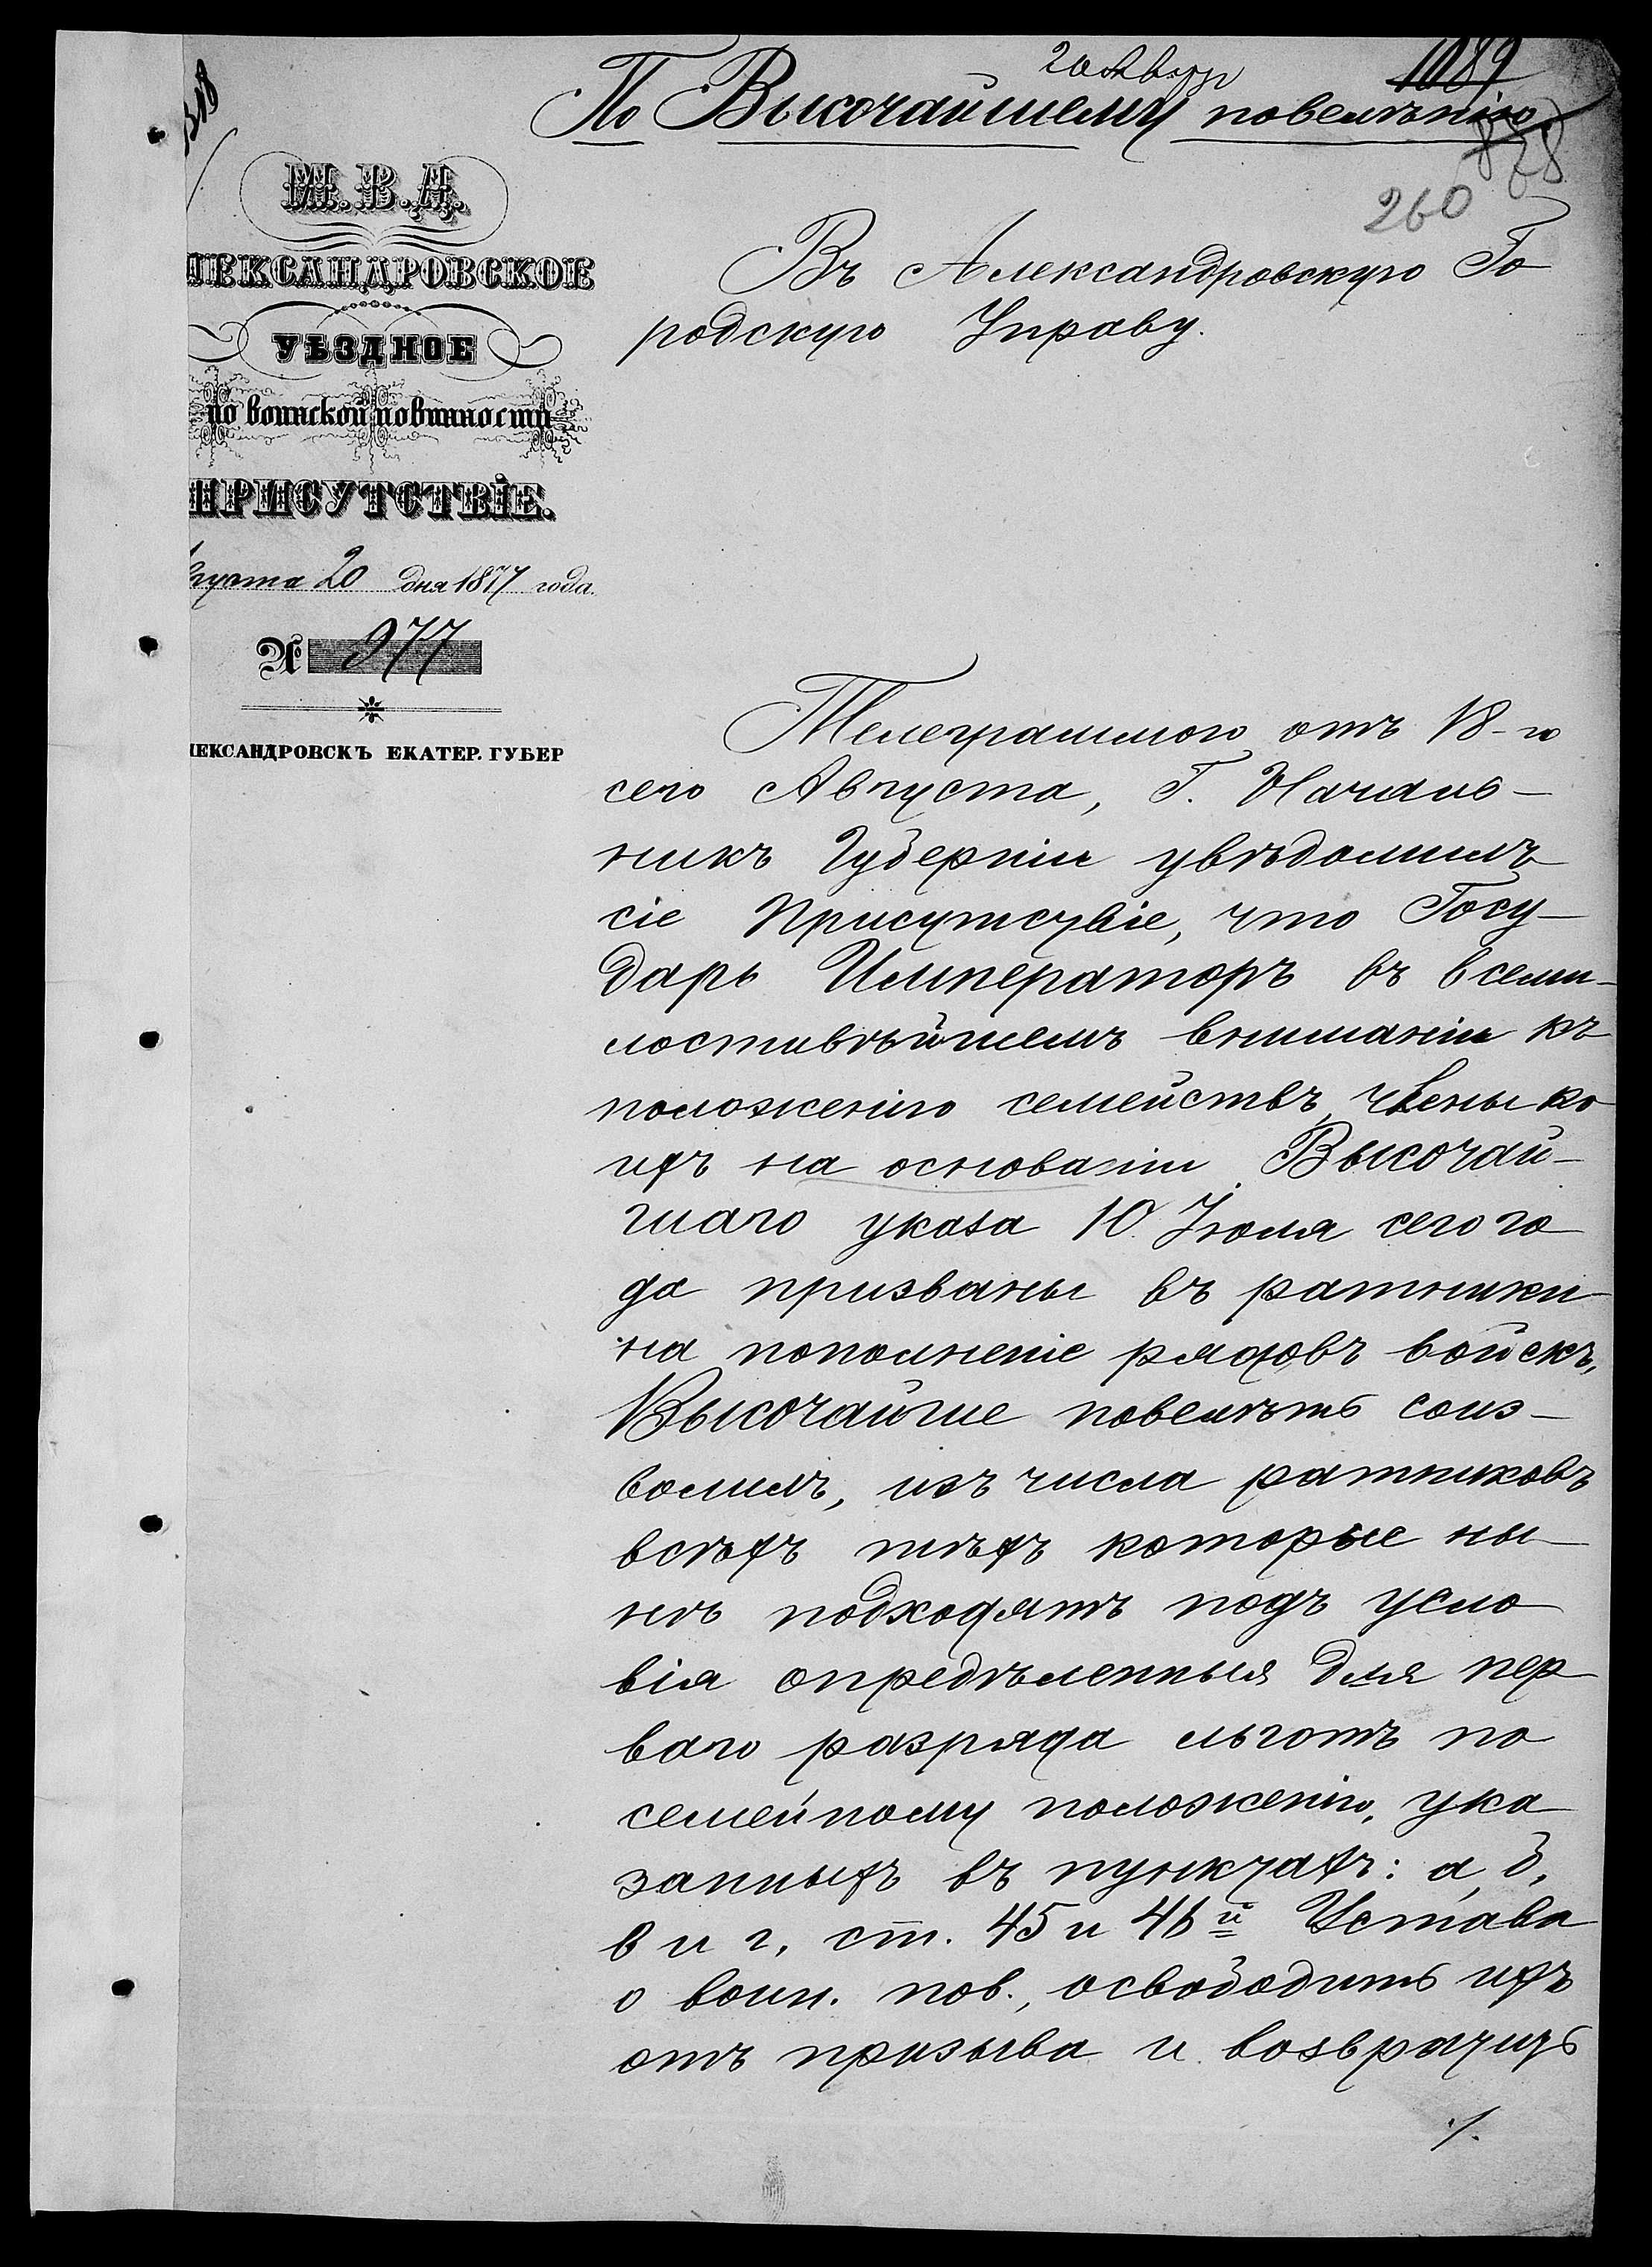 1089
По Высочайшему повелѣнію.
878
260
М.В.Д.
ЛЕКСАНДРОВСКОЕ
УѢЗДНОЕ
по воинской повинности
ПРИСУТСТВІЕ.
густа 20 дня 1877 года.
№ 977
ЛЕКСАНДРОВСКЪ ЕКАТЕР. ГУБЕР
Въ Александровскую Го
родскую Управу.
Телеграммою отъ 18-го
сего Августа, Г. Началь-
никъ Губерніи увѣдомилъ
сіе Присутствіе, что Госу-
дарь Императоръ въ всеми-
лостивѣйшемъ вниманіи къ
положенію семействъ, члены ко
ихъ на основаніи Высочай-
шаго указа 10 Іюля сего го
да призваны въ ратники
на пополненіе рядовъ войскъ,
Высочайше повелѣть соиз-
волилъ, изъ числа ратниковъ
всѣхъ тѣхъ которые ны-
нѣ подходятъ подъ усло
вія опредѣленныя для пер
ваго разряда льготъ по
семейному положенію, ука
занныхъ въ пунктахъ: а, б,
в и г, ст. 45 и 46й Устава
о воин. пов., освободить ихъ
отъ призыва и возвратить
./.